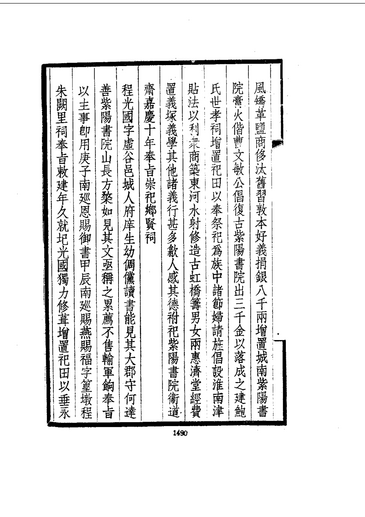 風矯革鹽商侈汰舊習敦本好義捐銀八千兩增置城南紫陽書
院膏火偕曹文敏公倡復古紫陽書院出三千金以落成之建鮑
氏世孝祠增置祀田以奉祭祀爲族中諸節婦請旌倡設淮南津
貼法以利衆商築東河水射修造古虹橋籌男女兩惠濟堂經費
置義塚義學其他諸義行甚多歙人感其德祔祀紫陽書院衛道
齋嘉慶十年奉旨崇祀鄉賢祠
程光國字虛谷邑城人府庠生幼倜儻讀書能見其大郡守何達
善紫陽書院山長方楘如見其文亟稱之累薦不售輸軍餉奉旨
以主事即用庚子南廵恩賜御書甲辰南廵賜燕賜福字篁墩程
朱闕里祠奉旨敕建年久就圮光國獨力修葺增置祀田以垂永
1490